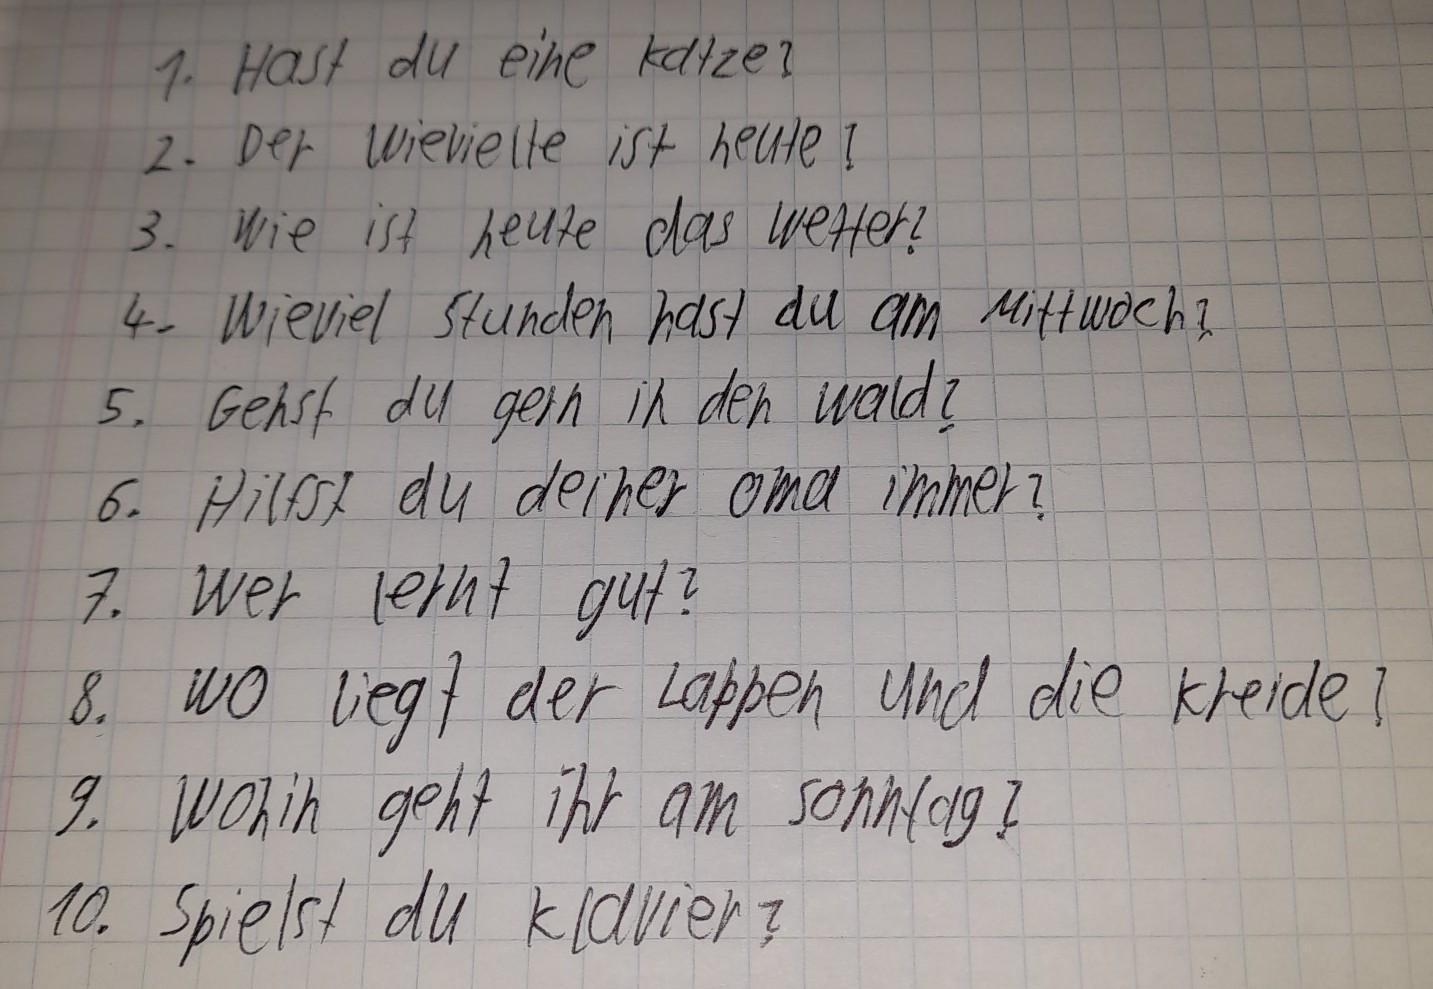 1. Hast du eine Katze?
2. Der Wievielte ist heute?
3. Wie ist heute das Wetter?
4. Wieviel Stunden hast du am Mittwoch?
5. Gehst du gern in den Wald?
6. Hilfst du deiner Oma immer?
7. Wer lernt gut?
8. Wo liegt der Lappen und die Kreide?
9. Wohin geht ihr am Sonntag?
10. Spielst du Klavier?